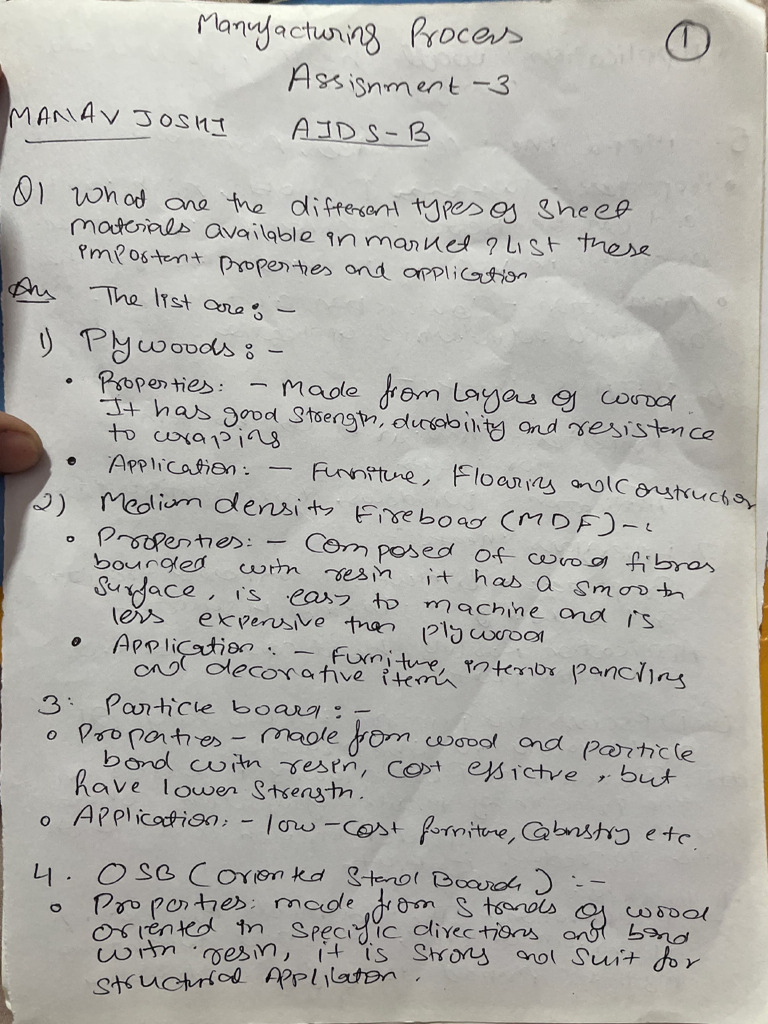 Manufacturing Process
1
Assignment -3
MANAV JOSHI AIDS-B
Q1 What are the different types of sheet
materials available in market ? List these
important properties and application
Ans The list are : -
1) Plywoods : -
• Properties : - Made from layers of wood.
It has good strength, durability and resistence
to wraping
• Application : - Furniture, Floaring and Constructor
2) Medium density Fireboad (MDF) - :
• Properties : - Composed of wood fibres
bounded with resin it has a smooth
surface, is easy to machine and is
less expensive then plywood
• Application : - Furniture, interior pancling
and decorative item
3: Particle board : -
• Propoties - made from wood and particle
bond with resin, cost effictve, but
have lower strength.
• Application : - low-cost forniture, Cabnstry etc.
4. OSB (Oriented Stand Boards) : -
• Propoties: made from strands of wood
oriented in specific directions and bond
with resin, it is strong and suit for
structural Appliaton.